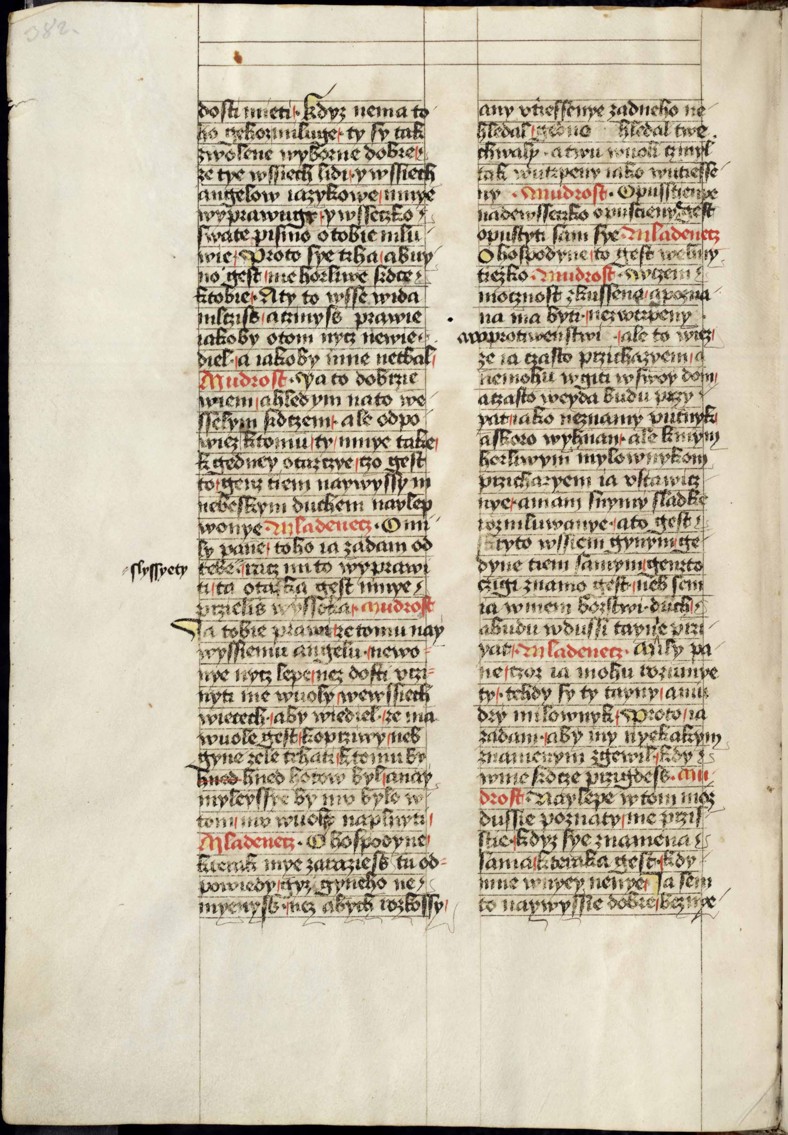 382.
dosti mieti· kdyz nema to
ho gekozmiluge· ty sy tak
zwolene wyborne dobre·
ze tye wssiech lidi· y wssiech
angelow iazykowe mnye
wyprawugi· y wsseczko
swate pismo o tobie mlu
wie· Proto sye trha a buy
no gest me horliwe srdce
k tobie· A ty to wsse wida
mlczis a czinyss prawie
iakoby o tom nycz newie
diel· a iakoby mne netbal
Mudrost· Ya to dobrzie
wiem a hledym na to we
sselym srdczem· ale odpo
wiez k tomu ty mnye take
k gedney otazcze czo gest
to genz tiem naywyssym
nebeskym duchem naylep
wonye Mladenecz· O mi
ly pane toho ia zadam od
tebe· racz mi to wyprawi
slyssyety
ti ta otazka gest mnye
przielis wyssoka· Mudrost
Ja tobie prawi ze tomu nay
wyssiemu angelu newo
nye nycz lepe nez dosti vczi
nyti me wuoly we wssiech
wiecech· aby wiediel· ze ma
wuole gest koprziwy neb
gyne zele trhati k tomu by
hned hned hotow byl a nay
myleyssye by mu bylo w
tom mu wuoly naplnyti
Mladenecz· O hospodyne
kterak mye zarazies tu od
powiedy gyz gyneho ne
myenyss· nez abych rozkossy
any vtiessenye zadneho ne
hledal gedne hledal twe
chwaly· a twu wuoli czinyl
tak w utrpeny iako w utiesse
ny· Mudrost· Opusstienye
nadewsseczko opustieny gest
opustyti sam sye Mladenecz
O hospodyne to gest welmy
tiezko· Mudrost· Wczem
mocznost zkussena a pozna
na ma byti· nez w trpeny
a w protiwenstwi· ale to wiez
ze ia czasto przichazyem a
nemohu wgiti w swoy dom
a czasto weyda budu przy
pat iako neznamy putnyk
a skoro wyhnan· ale k mym
horliwym mylownykom
przichazyem ia vstawicz
nye· a mam s nymy sladke
rozmluwanye· a to gest
skryto wssiem gynym ge
dyne tiem samym genzto
czigi znamo gest· neb sem
ia w mem bozstwi duch
a budu w dussi taynye przi
yat· Mladenecz· Mily pa
ne czoz ia mohu rozumye
ty· tehdy sy ty tayny a mu
dry milownyk· Proto ia
zadam· aby my nyekakym
znamenym zgewil· kdy
w me srdcze przigdess· Mu
drost· Naylepe w tom moz
dussie poznaty me przis
stie· kdyz sye znamena
sama kteraka gest· kdy
mne w nyey nenye· Ja sem
to naywyssie dobre bez mne